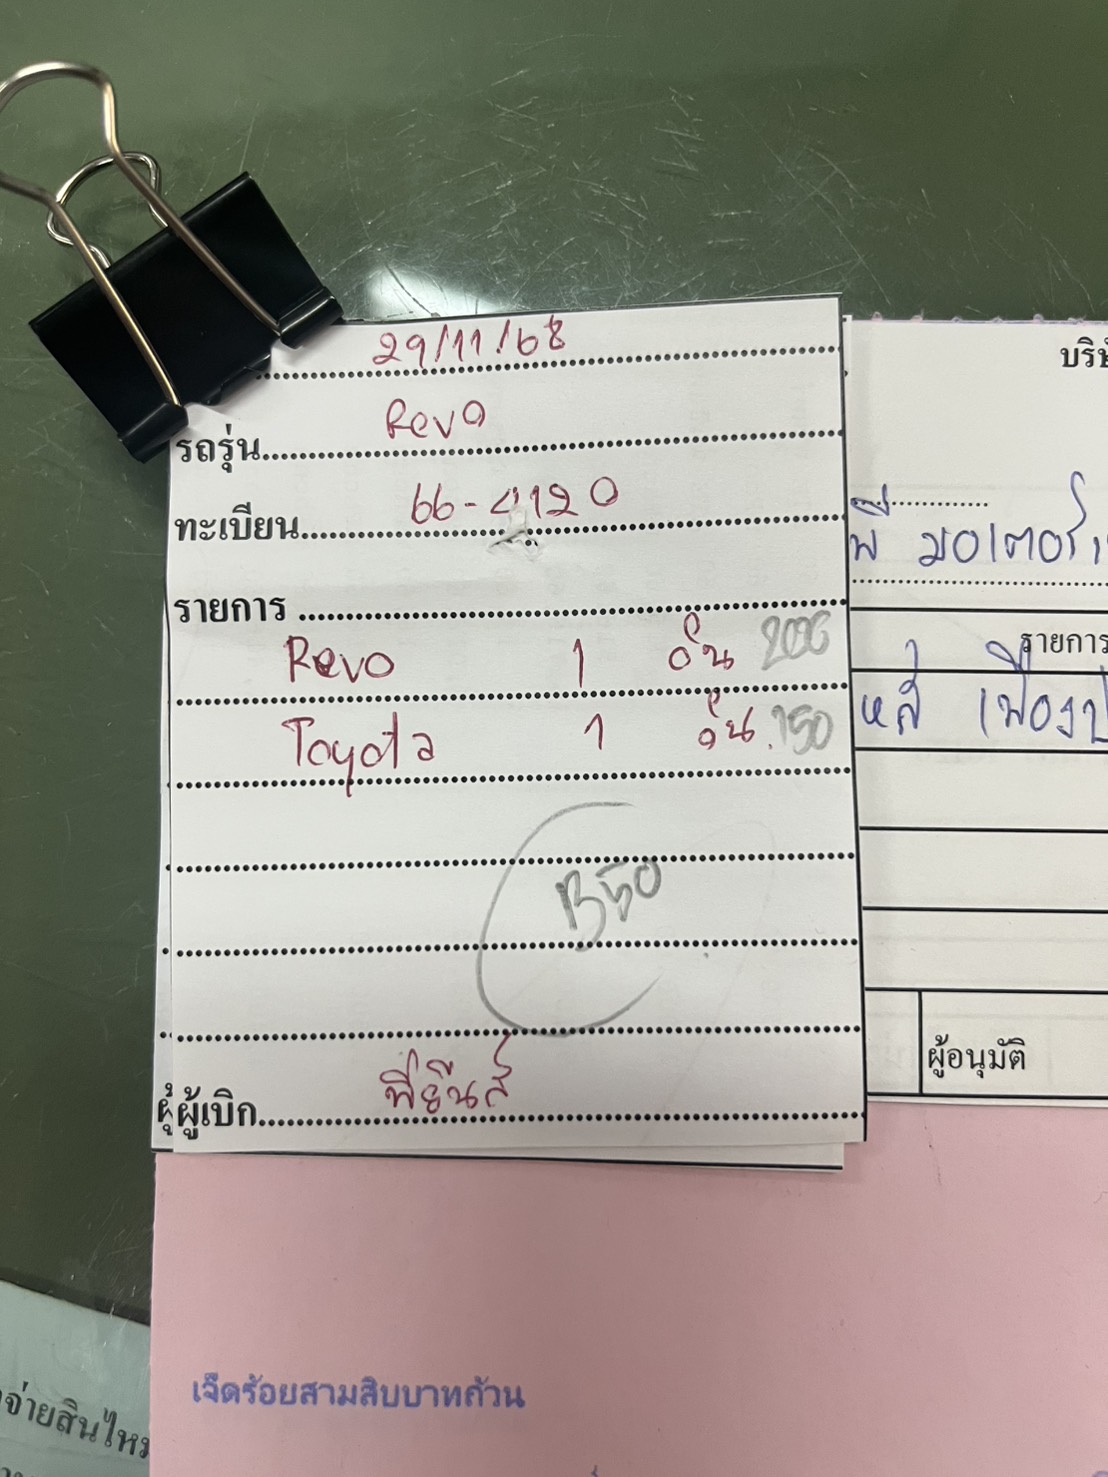 29/11/68
รถรุ่น Revo
ทะเบียน 66-4120
รายการ
Revo 1 อัน 200
Toyota 1 อัน 150
350
ผู้เบิก พี่ยีนส์
บริษ
พี มอเตอร์เ
รายการ
เฟืองป
ผู้อนุมัติ
เจ็ดร้อยสามสิบบาทถ้วน
จ่ายสินไหม